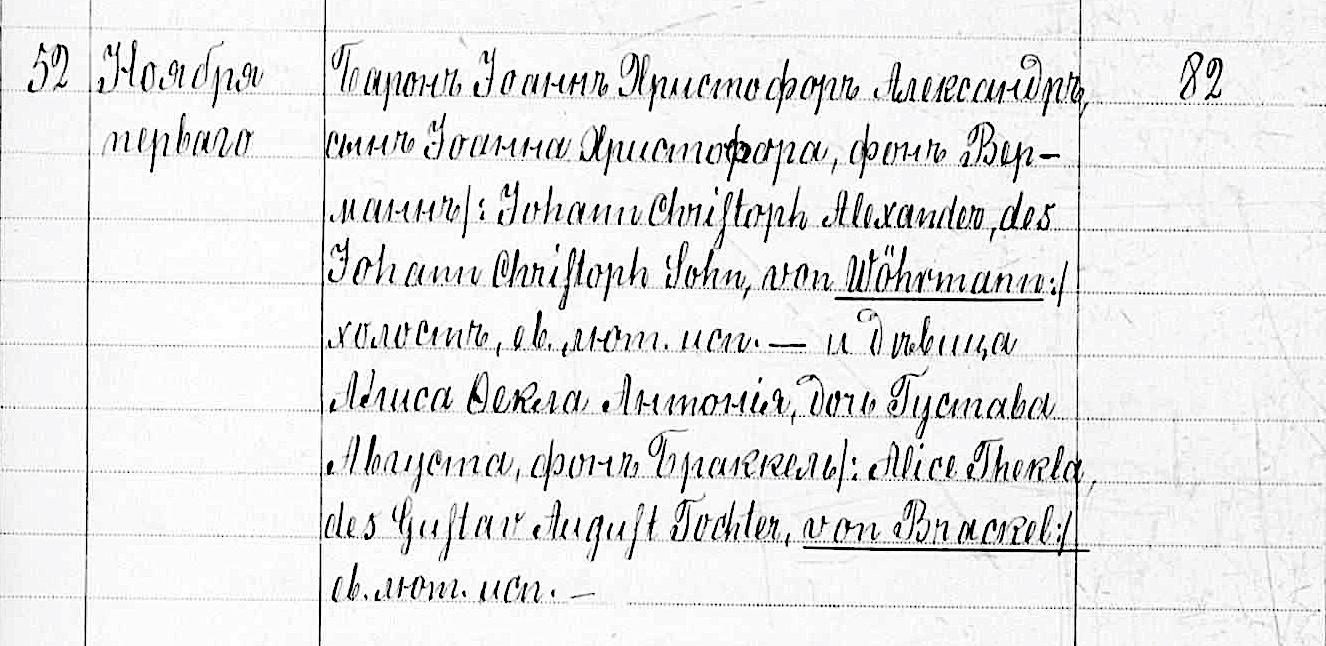 52 Ноября Баронъ Іоаннъ Христофоръ Александръ, 82
перваго сынъ Іоанна Христофора, фонъ Вер-
маннъ/: Johann Christoph Alexander, des
Johann Christoph Sohn, von Wöhrmann:/
холостъ, ев. лют. исп. — и дѣвица
Алиса Ѳекла Антонія, дочь Густава
Августа, фонъ Браккель/: Alice Thekla,
des Gustav August Tochter, von Brackel:/
ев. лют. исп. —